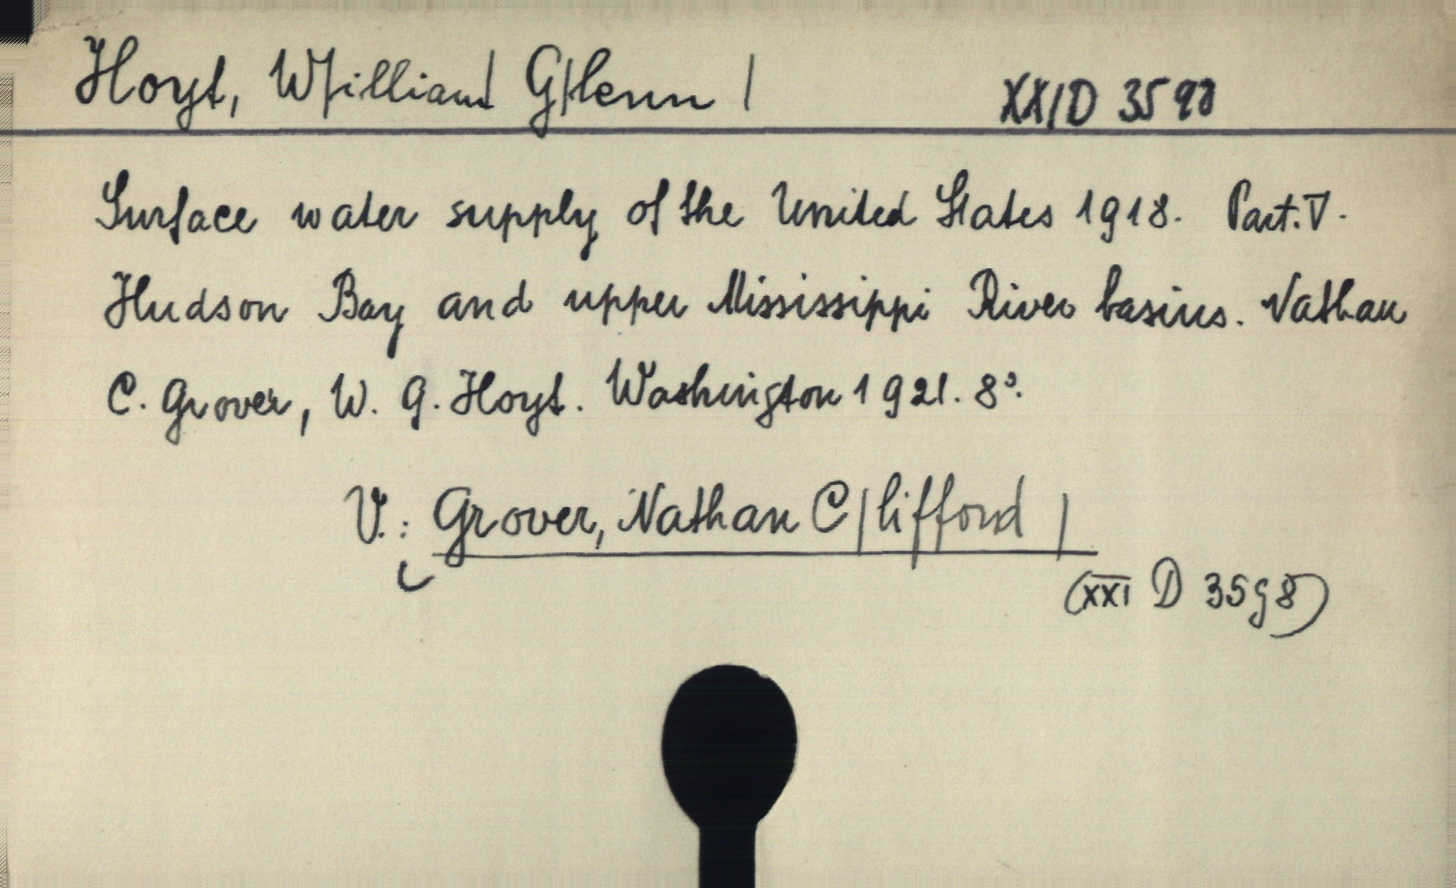 Hoyt, W|illiam| G|lenn | XXI D 3598
Surface water supply of the United States 1918. Part. V.
Hudson Bay and upper Mississippi River basins. Nathan
C. Grover, W. G. Hoyt. Washington 1921. 8°.
V.: Grover, Nathan C|lifford |
(XXI D 3598)